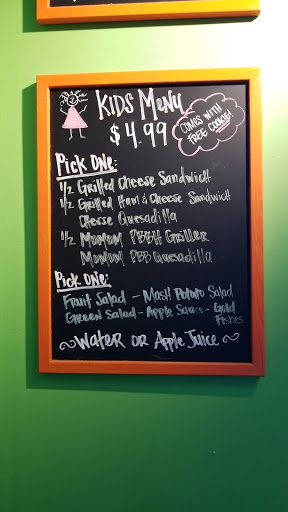 Kids Menu
$4.99
COMES WITH
FREE COOKIE!
Pick One:
1/2 Grilled Cheese Sandwich
1/2 Grilled Ham & Cheese Sandwich
Cheese Quesadilla
1/2 MoMoM PBBH Griller
MoMoM PBB Quesadilla
Pick One:
Fruit Salad - Mash Potato Salad
Green Salad - Apple Sauce - Gold
Fishes
Water or Apple Juice